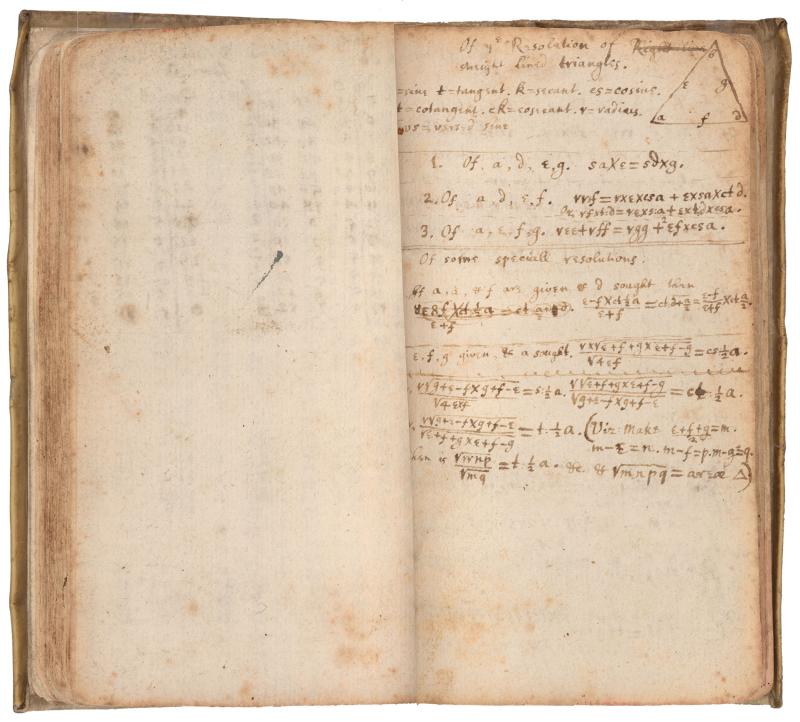 Of yᵉ Resolution of ~~Right line~~
streight lined triangles.
b
ε g
a f d
=sine t=tangent. k=secant. cs=cosine.
t=cotangent. ck=cosecant. r=radius.
vs=versed sine
1. Of, a, d, ε, g. sa×ε=sd×g.
2. Of a, d, ε, f. rrf=r×ε×csa + ε×sa×ct d.
3. Of a, ε, f, g. rεε+rff=rgg+2εf×csa.
Of some speciall resolutions.
If a, ε, & f are given & d sought then
ε-f×ct½a / ε+f = ct d+½a = ε-f / ε+f × ct a/2.
ε, f, g given, & a sought. √r×rε+f+g×ε+f-g / √4εf = cs½a.
√rrg+ε-f×g+f-ε / √4ε×f = s:½a. √rrε+f+g×ε+f-g / √g+ε-f×g+f-ε = ct:½a.
√rrg+ε-f×g+f-ε / √ε+f+g×ε+f-g = t:½a. (Viz: make ε+f+g / 2 = m.
m-ε=n. m-f=p. m-g=q.
then is √rrnp / √mq = t:½a. &c. & √mnpq = areæ Δ)